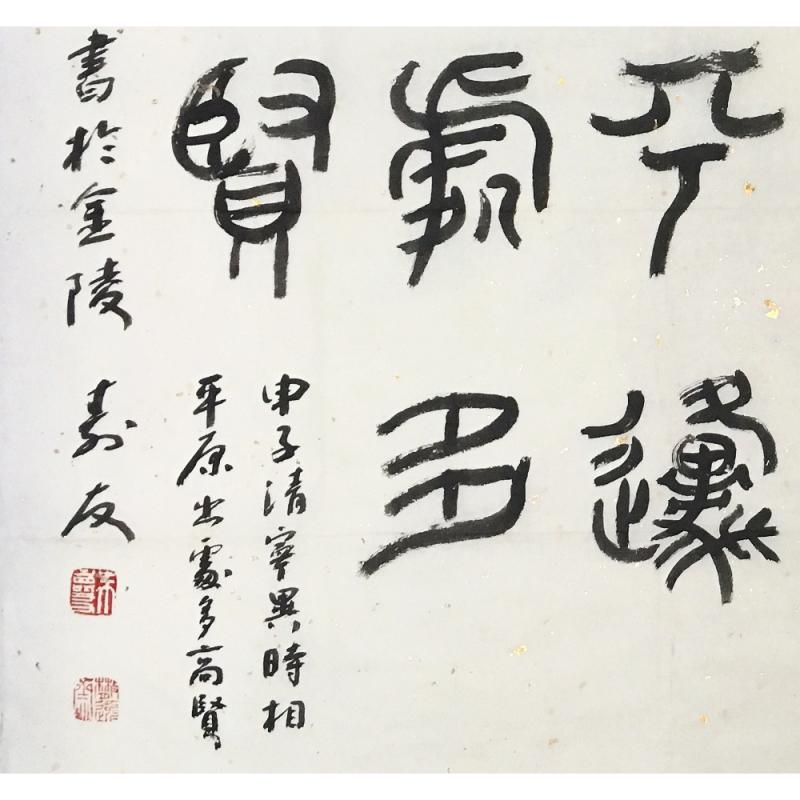 平邍
處多
賢
申子清寧異時相
平原出處多高賢
書於金陵 壽友